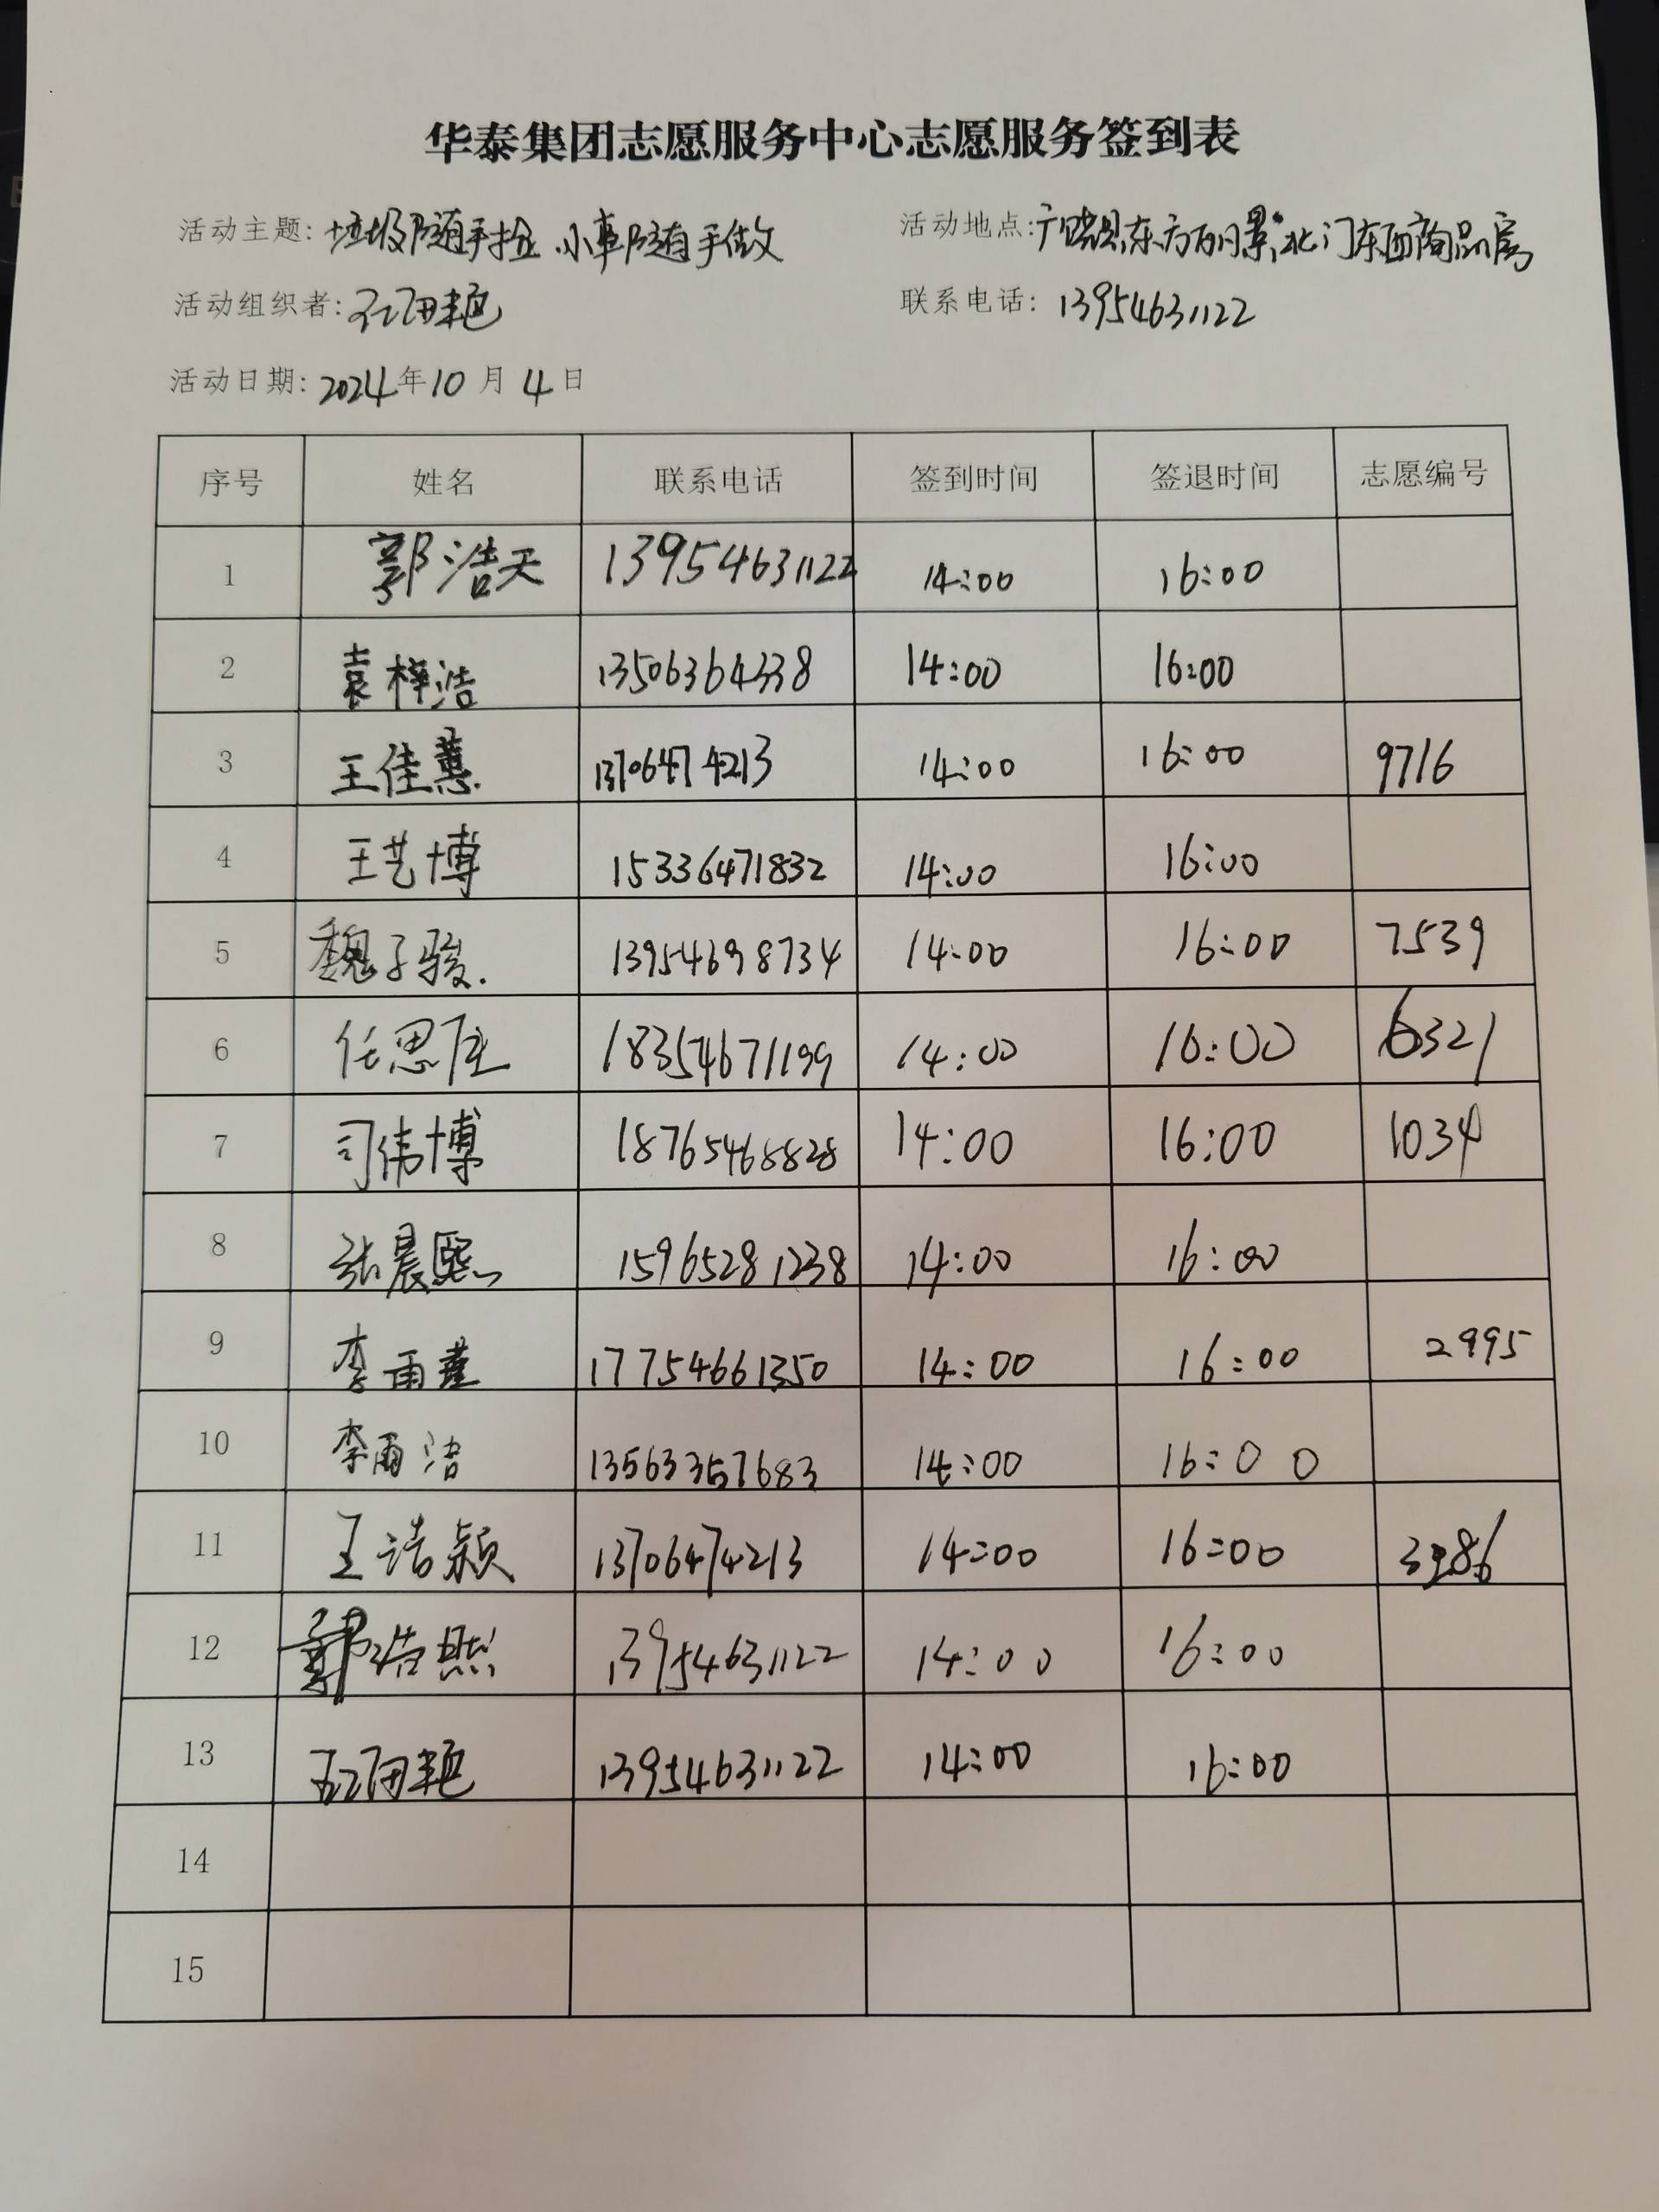 华泰集团志愿服务中心志愿服务签到表
活动主题: 垃圾随手捡 小事随手做 活动地点: 广饶县东方丽景北门东西商品房
活动组织者: 联系电话: 13954631122
活动日期: 2024年10月4日
序号 姓名 联系电话 签到时间 签退时间 志愿编号
1 郭浩天 13954631122 14:00 16:00
2 袁梓浩 13506364338 14:00 16:00
3 王佳蕙 13706474213 14:00 16:00 9716
4 王艺博 15336471832 14:00 16:00
5 魏子骏 13954698734 14:00 16:00 7539
6 任思 18354671199 14:00 16:00 6321
7 司伟博 18765468828 14:00 16:00 1034
8 张晨熙 15965281238 14:00 16:00
9 李雨 17754661350 14:00 16:00 2995
10 李雨洁 13563357683 14:00 16:00
11 王浩颖 13706474213 14:00 16:00
12 郭浩然 13954631122 14:00 16:00
13 13954631122 14:00 16:00
14
15